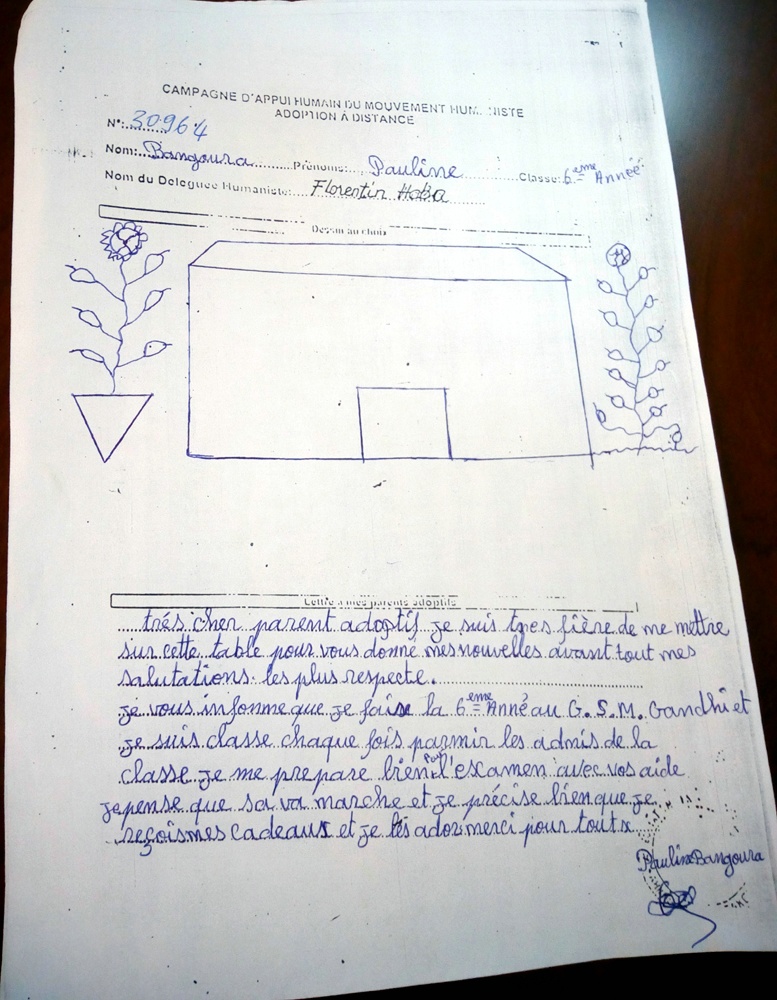 CAMPAGNE D'APPUI HUMAIN DU MOUVEMENT HUMANISTE
ADOPTION À DISTANCE
N°: 30964
Nom: Bangoura Prénoms: Pauline Classe: 6ème Année
Nom du Deleguée Humaniste: Florentin Haba
Dessin au choix
Lettre à mes parents adoptifs
trés cher parent adoptif je suis tres fière de me mettre
sur cette table pour vous donné mes nouvelles avant tout mes
salutations les plus respecte.
je vous informe que je faise la 6ème Anné au G.S.M. Gandhi et
je suis classe chaque fois parmir les admis de la
classe je me prepare bien pour l'examen avec vos aide
je pense que sa va marche et je précise bien que je
reçois mes cadeaux et je les ador merci pour touts
Pauline Bangoura